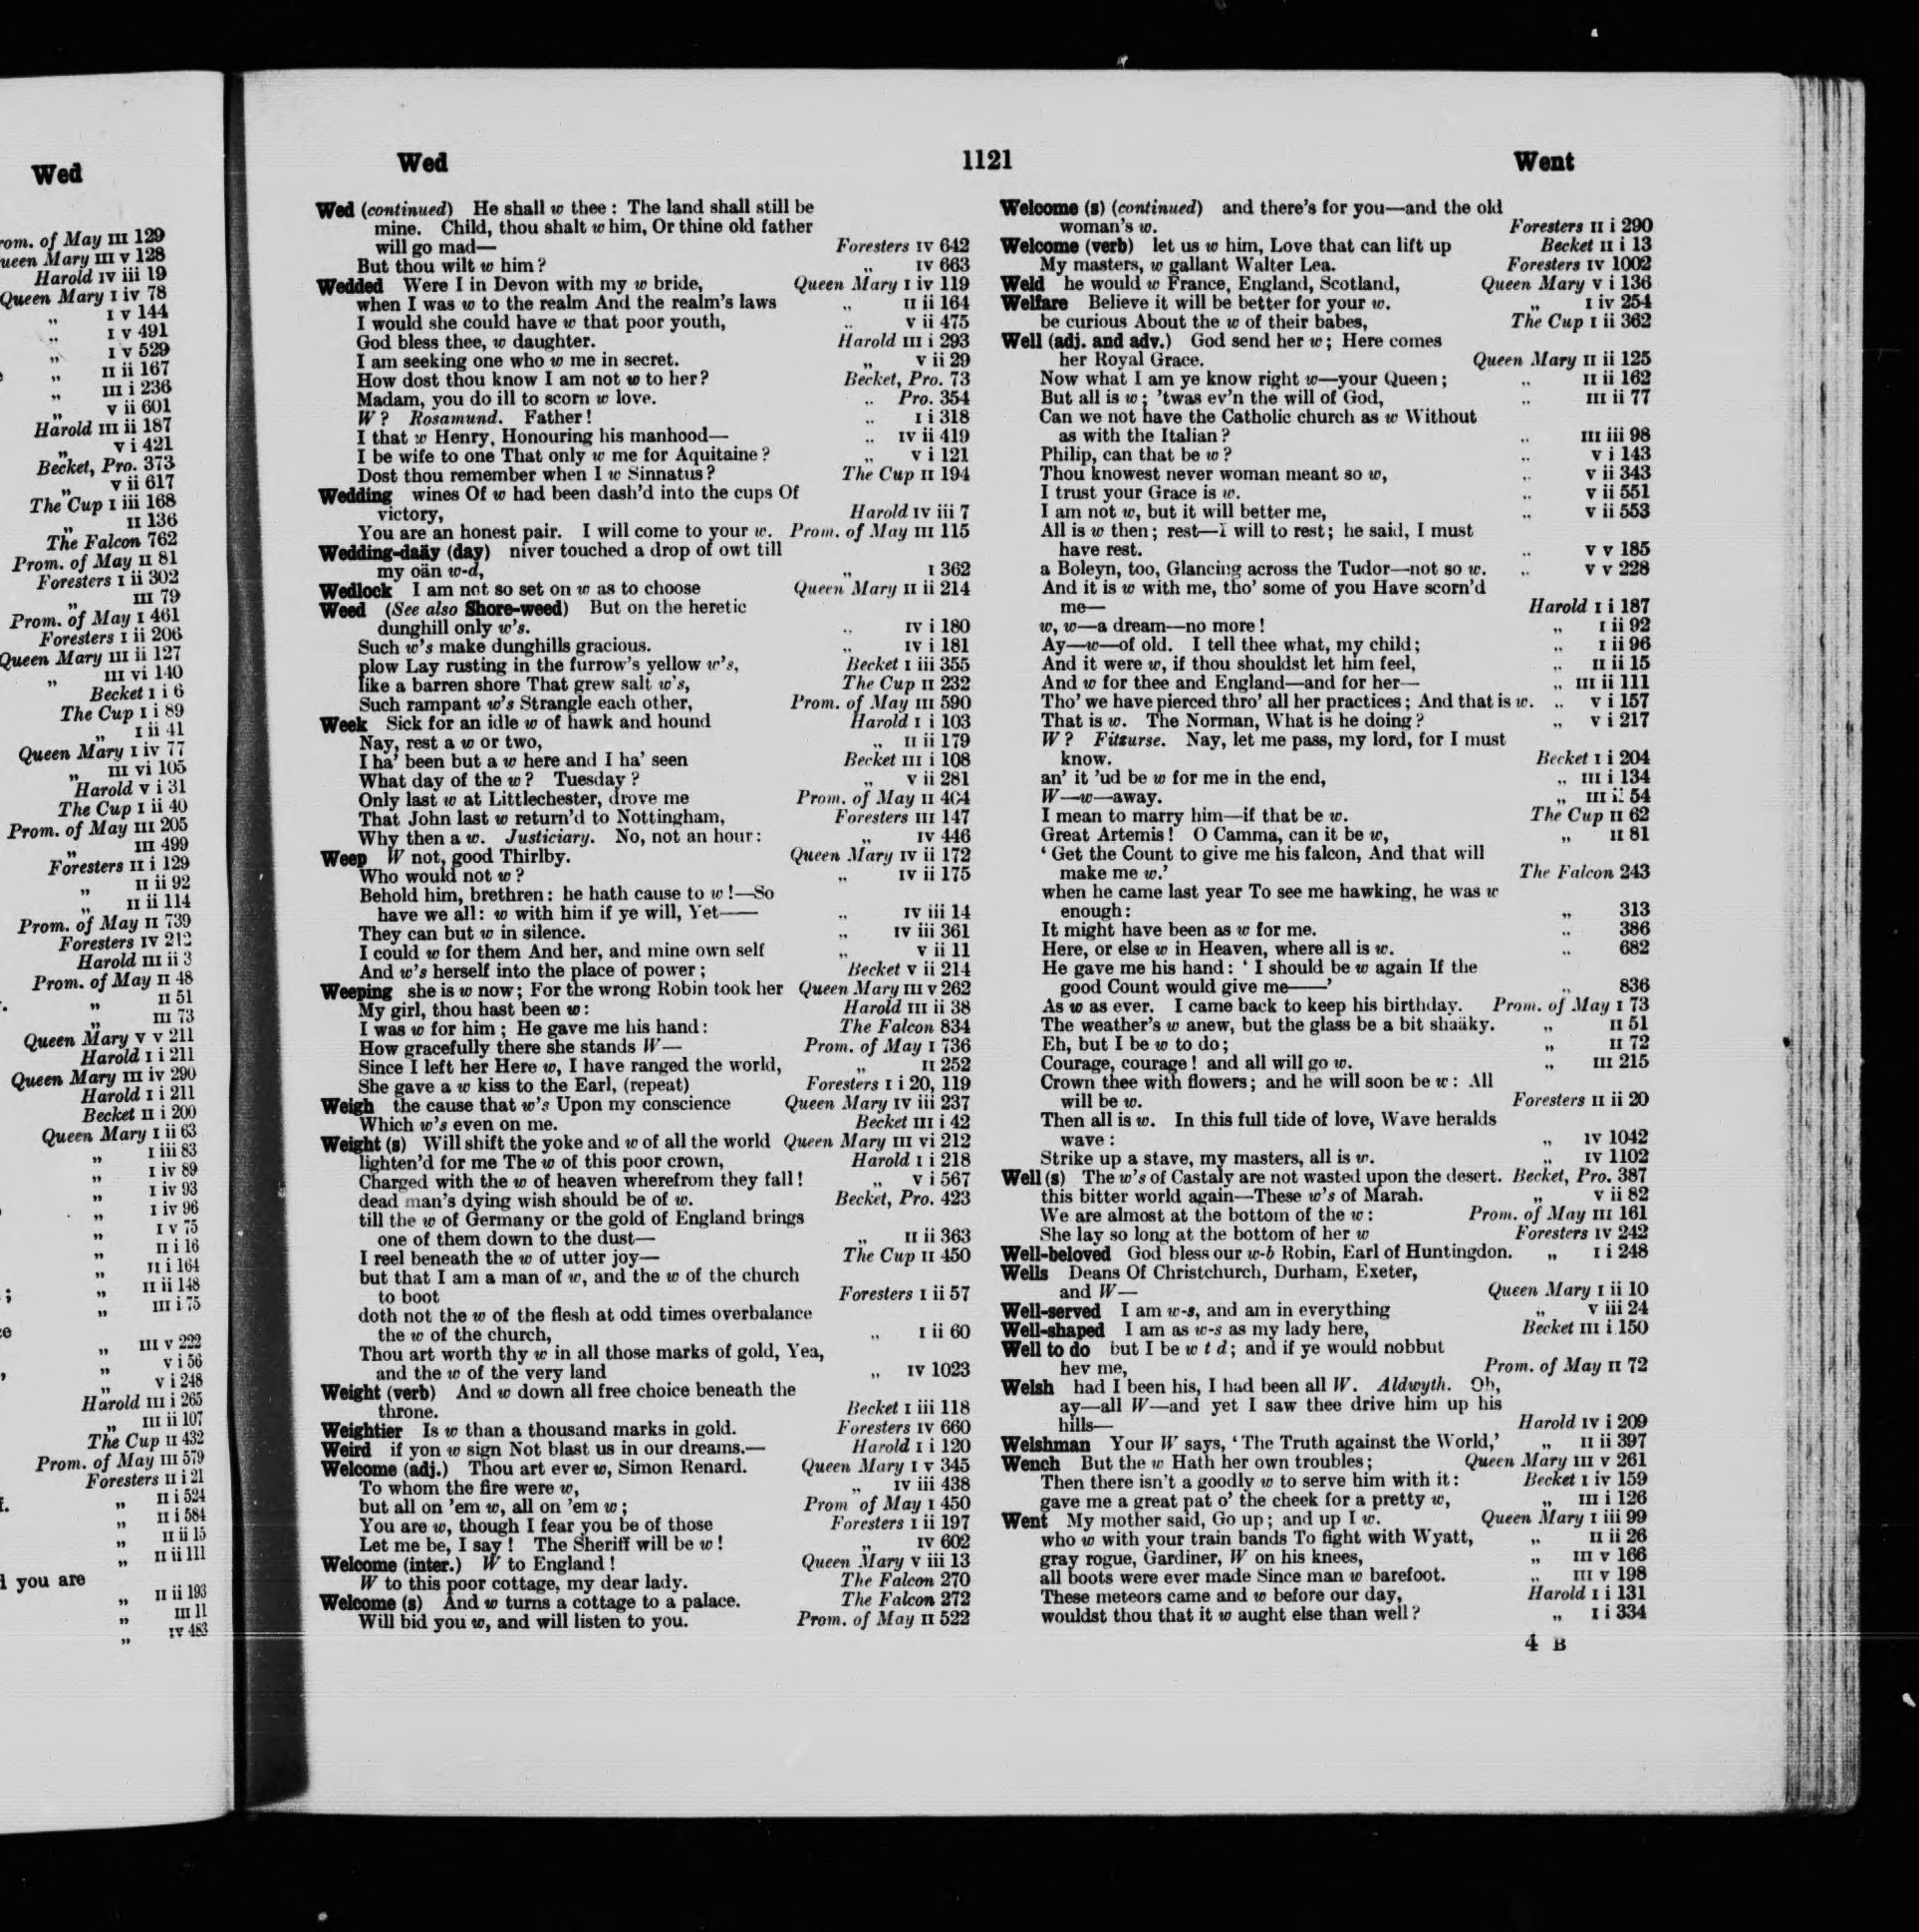 Wed
rom. of May III 129
ueen Mary III v 128
Harold IV iii 19
Queen Mary I iv 78
„ I v 144
„ I v 491
„ I v 529
„ II ii 167
„ III i 236
„ v ii 601
Harold III ii 187
„ v i 421
Becket, Pro. 373
„ v ii 617
The Cup I iii 168
„ II 136
The Falcon 762
Prom. of May II 81
Foresters I ii 302
„ III 79
Prom. of May I 461
Foresters I ii 206
Queen Mary III ii 127
„ III vi 140
Becket I i 6
The Cup I i 89
„ I ii 41
Queen Mary I iv 77
„ III vi 105
Harold v i 31
The Cup I ii 40
Prom. of May III 205
„ III 499
Foresters II i 129
„ II ii 92
„ II ii 114
Prom. of May II 739
Foresters IV 212
Harold III ii 3
Prom. of May II 48
„ II 51
„ III 73
Queen Mary v v 211
Harold I i 211
Queen Mary III iv 290
Harold I i 211
Becket II i 200
Queen Mary I ii 63
„ I iii 83
„ I iv 89
„ I iv 93
„ I iv 96
„ I v 75
„ II i 16
„ II i 164
; „ II ii 148
„ III i 75
„ III v 222
„ v i 56
„ v i 248
Harold III i 265
„ III ii 107
The Cup II 432
Prom. of May III 579
Foresters II i 21
„ II i 524
„ II i 584
„ II ii 15
„ II ii 111
you are
„ II ii 193
„ III 11
„ IV 483
Wed 1121 Went
Wed (continued) He shall w thee : The land shall still be
mine. Child, thou shalt w him, Or thine old father
will go mad— Foresters IV 642
But thou wilt w him ? „ IV 663
Wedded Were I in Devon with my w bride, Queen Mary I iv 119
when I was w to the realm And the realm's laws „ II ii 164
I would she could have w that poor youth, „ v ii 475
God bless thee, w daughter. Harold III i 293
I am seeking one who w me in secret. „ v ii 29
How dost thou know I am not w to her ? Becket, Pro. 73
Madam, you do ill to scorn w love. „ Pro. 354
W ? Rosamund. Father ! „ I i 318
I that w Henry, Honouring his manhood— „ IV ii 419
I be wife to one That only w me for Aquitaine ? „ v i 121
Dost thou remember when I w Sinnatus ? The Cup II 194
Wedding wines Of w had been dash'd into the cups Of
victory, Harold IV iii 7
You are an honest pair. I will come to your w. Prom. of May III 115
Wedding-daäy (day) niver touched a drop of owt till
my oän w-d, „ I 362
Wedlock I am not so set on w as to choose Queen Mary II ii 214
Weed (See also Shore-weed) But on the heretic
dunghill only w's. „ IV i 180
Such w's make dunghills gracious. „ IV i 181
plow Lay rusting in the furrow's yellow w's, Becket I iii 355
like a barren shore That grew salt w's, The Cup II 232
Such rampant w's Strangle each other, Prom. of May III 590
Week Sick for an idle w of hawk and hound Harold I i 103
Nay, rest a w or two, „ II ii 179
I ha' been but a w here and I ha' seen Becket III i 108
What day of the w ? Tuesday ? „ v ii 281
Only last w at Littlechester, drove me Prom. of May II 404
That John last w return'd to Nottingham, Foresters III 147
Why then a w. Justiciary. No, not an hour : „ IV 446
Weep W not, good Thirlby. Queen Mary IV ii 172
Who would not w ? „ IV ii 175
Behold him, brethren : he hath cause to w !—So
have we all : w with him if ye will, Yet—— „ IV iii 14
They can but w in silence. „ IV iii 361
I could w for them And her, and mine own self „ v ii 11
And w's herself into the place of power ; Becket v ii 214
Weeping she is w now ; For the wrong Robin took her Queen Mary III v 262
My girl, thou hast been w : Harold III ii 38
I was w for him ; He gave me his hand : The Falcon 834
How gracefully there she stands W— Prom. of May I 736
Since I left her Here w, I have ranged the world, „ II 252
She gave a w kiss to the Earl, (repeat) Foresters I i 20, 119
Weigh the cause that w's Upon my conscience Queen Mary IV iii 237
Which w's even on me. Becket III i 42
Weight (s) Will shift the yoke and w of all the world Queen Mary III vi 212
lighten'd for me The w of this poor crown, Harold I i 218
Charged with the w of heaven wherefrom they fall ! „ v i 567
dead man's dying wish should be of w. Becket, Pro. 423
till the w of Germany or the gold of England brings
one of them down to the dust— „ II ii 363
I reel beneath the w of utter joy— The Cup II 450
but that I am a man of w, and the w of the church
to boot Foresters I ii 57
doth not the w of the flesh at odd times overbalance
the w of the church, „ I ii 60
Thou art worth thy w in all those marks of gold, Yea,
and the w of the very land „ IV 1023
Weight (verb) And w down all free choice beneath the
throne. Becket I iii 118
Weightier Is w than a thousand marks in gold. Foresters IV 660
Weird if yon w sign Not blast us in our dreams.— Harold I i 120
Welcome (adj.) Thou art ever w, Simon Renard. Queen Mary I v 345
To whom the fire were w, „ IV iii 438
but all on 'em w, all on 'em w ; Prom of May I 450
You are w, though I fear you be of those Foresters I ii 197
Let me be, I say ! The Sheriff will be w ! „ IV 602
Welcome (inter.) W to England ! Queen Mary v iii 13
W to this poor cottage, my dear lady. The Falcon 270
Welcome (s) And w turns a cottage to a palace. The Falcon 272
Will bid you w, and will listen to you. Prom. of May II 522
Welcome (s) (continued) and there's for you—and the old
woman's w. Foresters II i 290
Welcome (verb) let us w him, Love that can lift up Becket II i 13
My masters, w gallant Walter Lea. Foresters IV 1002
Weld he would w France, England, Scotland, Queen Mary v i 136
Welfare Believe it will be better for your w. „ I iv 254
be curious About the w of their babes, The Cup I ii 362
Well (adj. and adv.) God send her w ; Here comes
her Royal Grace. Queen Mary II ii 125
Now what I am ye know right w—your Queen ; „ II ii 162
But all is w ; 'twas ev'n the will of God, „ III ii 77
Can we not have the Catholic church as w Without
as with the Italian ? „ III iii 98
Philip, can that be w ? „ v i 143
Thou knowest never woman meant so w, „ v ii 343
I trust your Grace is w. „ v ii 551
I am not w, but it will better me, „ v ii 553
All is w then ; rest—I will to rest ; he said, I must
have rest. „ v v 185
a Boleyn, too, Glancing across the Tudor—not so w. „ v v 228
And it is w with me, tho' some of you Have scorn'd
me— Harold I i 187
w, w—a dream—no more ! „ I ii 92
Ay—w—of old. I tell thee what, my child ; „ I ii 96
And it were w, if thou shouldst let him feel, „ II ii 15
And w for thee and England—and for her— „ III ii 111
Tho' we have pierced thro' all her practices ; And that is w. „ v i 157
That is w. The Norman, What is he doing ? „ v i 217
W ? Fitzurse. Nay, let me pass, my lord, for I must
know. Becket I i 204
an' it 'ud be w for me in the end, „ III i 134
W—w—away. „ III ii 54
I mean to marry him—if that be w. The Cup II 62
Great Artemis ! O Camma, can it be w, „ II 81
' Get the Count to give me his falcon, And that will
make me w.' The Falcon 243
when he came last year To see me hawking, he was w
enough : „ 313
It might have been as w for me. „ 386
Here, or else w in Heaven, where all is w. „ 682
He gave me his hand : ' I should be w again If the
good Count would give me——' „ 836
As w as ever. I came back to keep his birthday. Prom. of May I 73
The weather's w anew, but the glass be a bit shaäky. „ II 51
Eh, but I be w to do ; „ II 72
Courage, courage ! and all will go w. „ III 215
Crown thee with flowers ; and he will soon be w : All
will be w. Foresters II ii 20
Then all is w. In this full tide of love, Wave heralds
wave : „ IV 1042
Strike up a stave, my masters, all is w. „ IV 1102
Well (s) The w's of Castaly are not wasted upon the desert. Becket, Pro. 387
this bitter world again—These w's of Marah. „ v ii 82
We are almost at the bottom of the w : Prom. of May III 161
She lay so long at the bottom of her w Foresters IV 242
Well-beloved God bless our w-b Robin, Earl of Huntingdon. „ I i 248
Wells Deans Of Christchurch, Durham, Exeter,
and W— Queen Mary I ii 10
Well-served I am w-s, and am in everything „ v iii 24
Well-shaped I am as w-s as my lady here, Becket III i 150
Well to do but I be w t d ; and if ye would nobbut
hev me, Prom. of May II 72
Welsh had I been his, I had been all W. Aldwyth. Oh,
ay—all W—and yet I saw thee drive him up his
hills— Harold IV i 209
Welshman Your W says, ' The Truth against the World,' „ II ii 397
Wench But the w Hath her own troubles ; Queen Mary III v 261
Then there isn't a goodly w to serve him with it : Becket I iv 159
gave me a great pat o' the cheek for a pretty w, „ III i 126
Went My mother said, Go up ; and up I w. Queen Mary I iii 99
who w with your train bands To fight with Wyatt, „ II ii 26
gray rogue, Gardiner, W on his knees, „ III v 166
all boots were ever made Since man w barefoot. „ III v 198
These meteors came and w before our day, Harold I i 131
wouldst thou that it w aught else than well ? „ I i 334
4 B